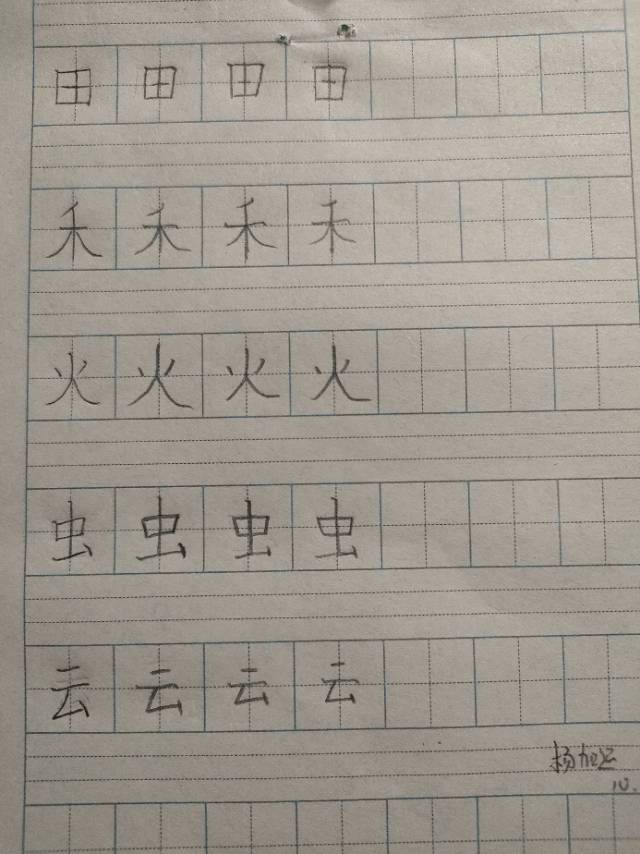 田 田 田 田
禾 禾 禾 禾
火 火 火 火
虫 虫 虫 虫
云 云 云 云